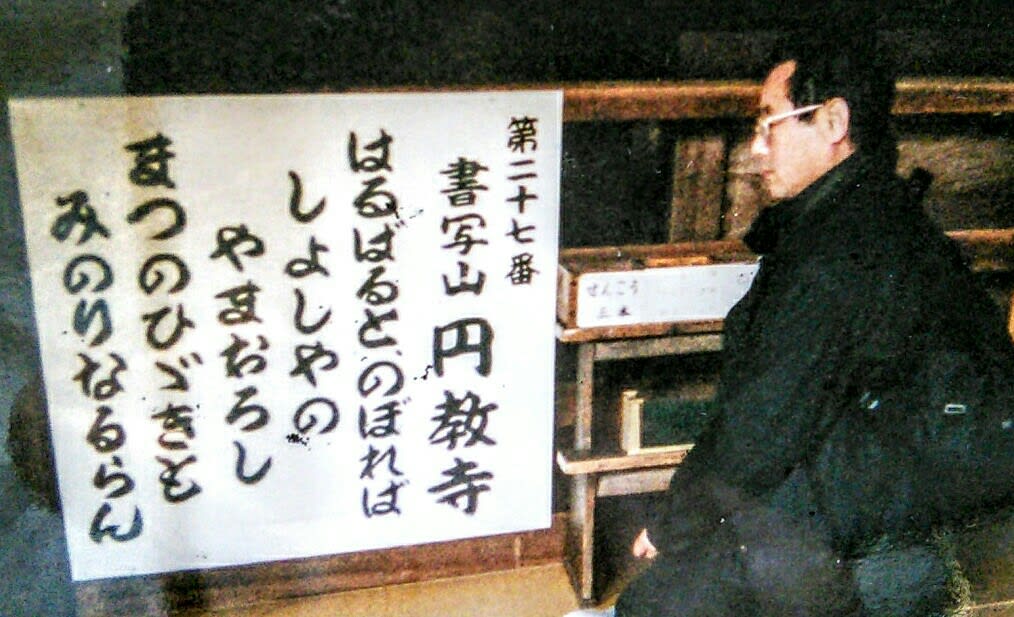 第二十七番
書写山 円教寺
はるばると、のぼれば
しよしやの
やまおろし
まつのひゞきも
みのりなるらん
せんこう
三本